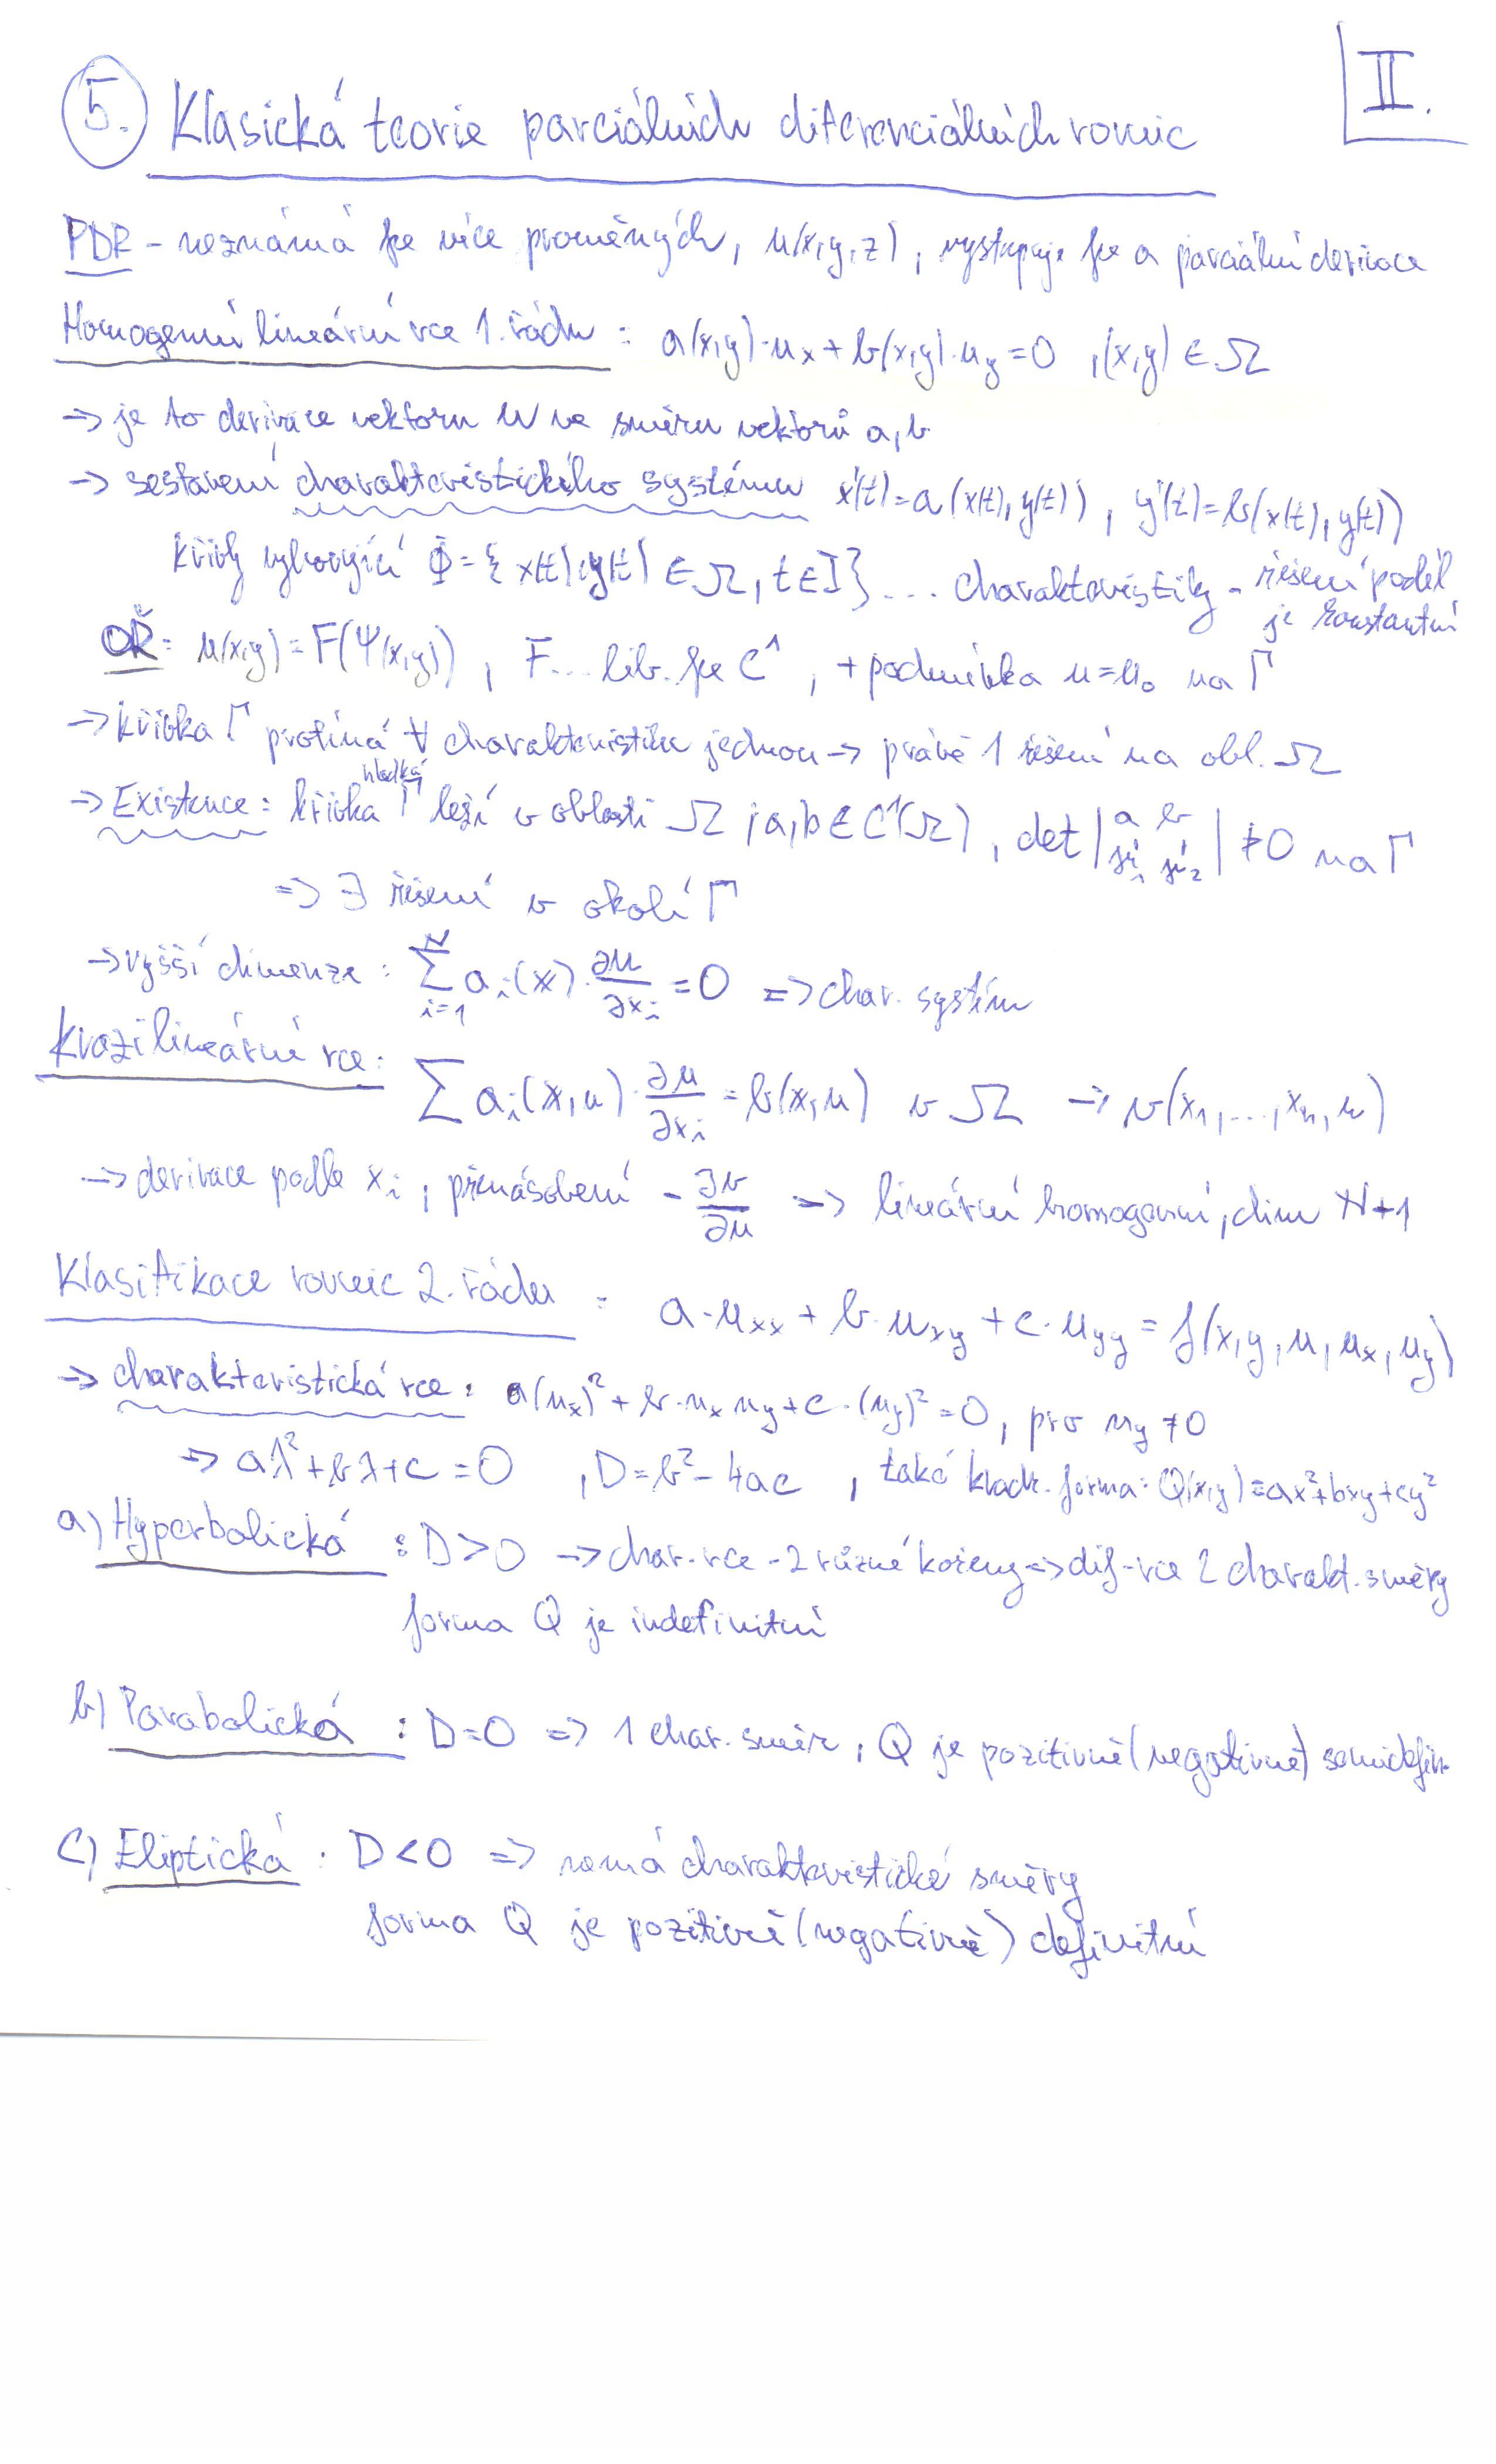 II.
5. Klasická teorie parciálních diferenciálních rovnic
PDR - neznámá fce více proměných, u(x,y,z), vystupuje fce a parciální derivace
Homogenní lineární rce 1. řádu : a(x,y)·u_x + b(x,y)·u_y = 0 , (x,y) ∈ Ω
→ je to derivace vektoru u ve směru vektorů a,b
→ sestavení charakteristického systému x'(t)=a(x(t),y(t)) , y'(t)=b(x(t),y(t))
křivky vyhovující Φ={x(t),y(t) ∈ Ω, t∈I}... charakteristiky - řešení podél
je konstantní
OŘ: u(x,y)=F(Ψ(x,y)) , F... lib. fce C¹ , + podmínka u=u₀ na Γ
→ křivka Γ protíná ∀ charakteristiku jednou → právě 1 řešení na obl. Ω
→ Existence : křivka hladká Γ leží v oblasti Ω , a,b ∈ C¹(Ω) , det | a b ; γ̇₁ γ̇₂ | ≠ 0 na Γ
=> ∃ řešení v okolí Γ
→ vyšší dimenze : ∑_{i=1}^{N} a_i(x) · ∂u/∂x_i = 0 => char. systém
Kvazilineární rce: ∑ a_i(x,u) · ∂u/∂x_i = b(x,u) v Ω → v(x₁,...,x_n,u)
→ derivace podle x_i , přenásobení - ∂v/∂u => lineární homogenní, dim N+1
Klasifikace rovnic 2. řádu : a·u_xx + b·u_xy + c·u_yy = f(x,y,u,u_x,u_y)
→ charakteristická rce : a(u_x)² + b·u_x u_y + c·(u_y)² = 0, pro u_y ≠ 0
=> aλ²+bλ+c = 0 , D=b²-4ac , také kvadr. forma: Q(x,y)=ax²+bxy+cy²
a) Hyperbolická : D>0 → char. rce - 2 různé kořeny => dif. rce 2 charakt. směry
forma Q je indefinitní
b) Parabolická : D=0 => 1 char. směr , Q je pozitivně (negativně) semidefin.
c) Eliptická : D<0 => nemá charakteristické směry
forma Q je pozitivně (negativně) definitní